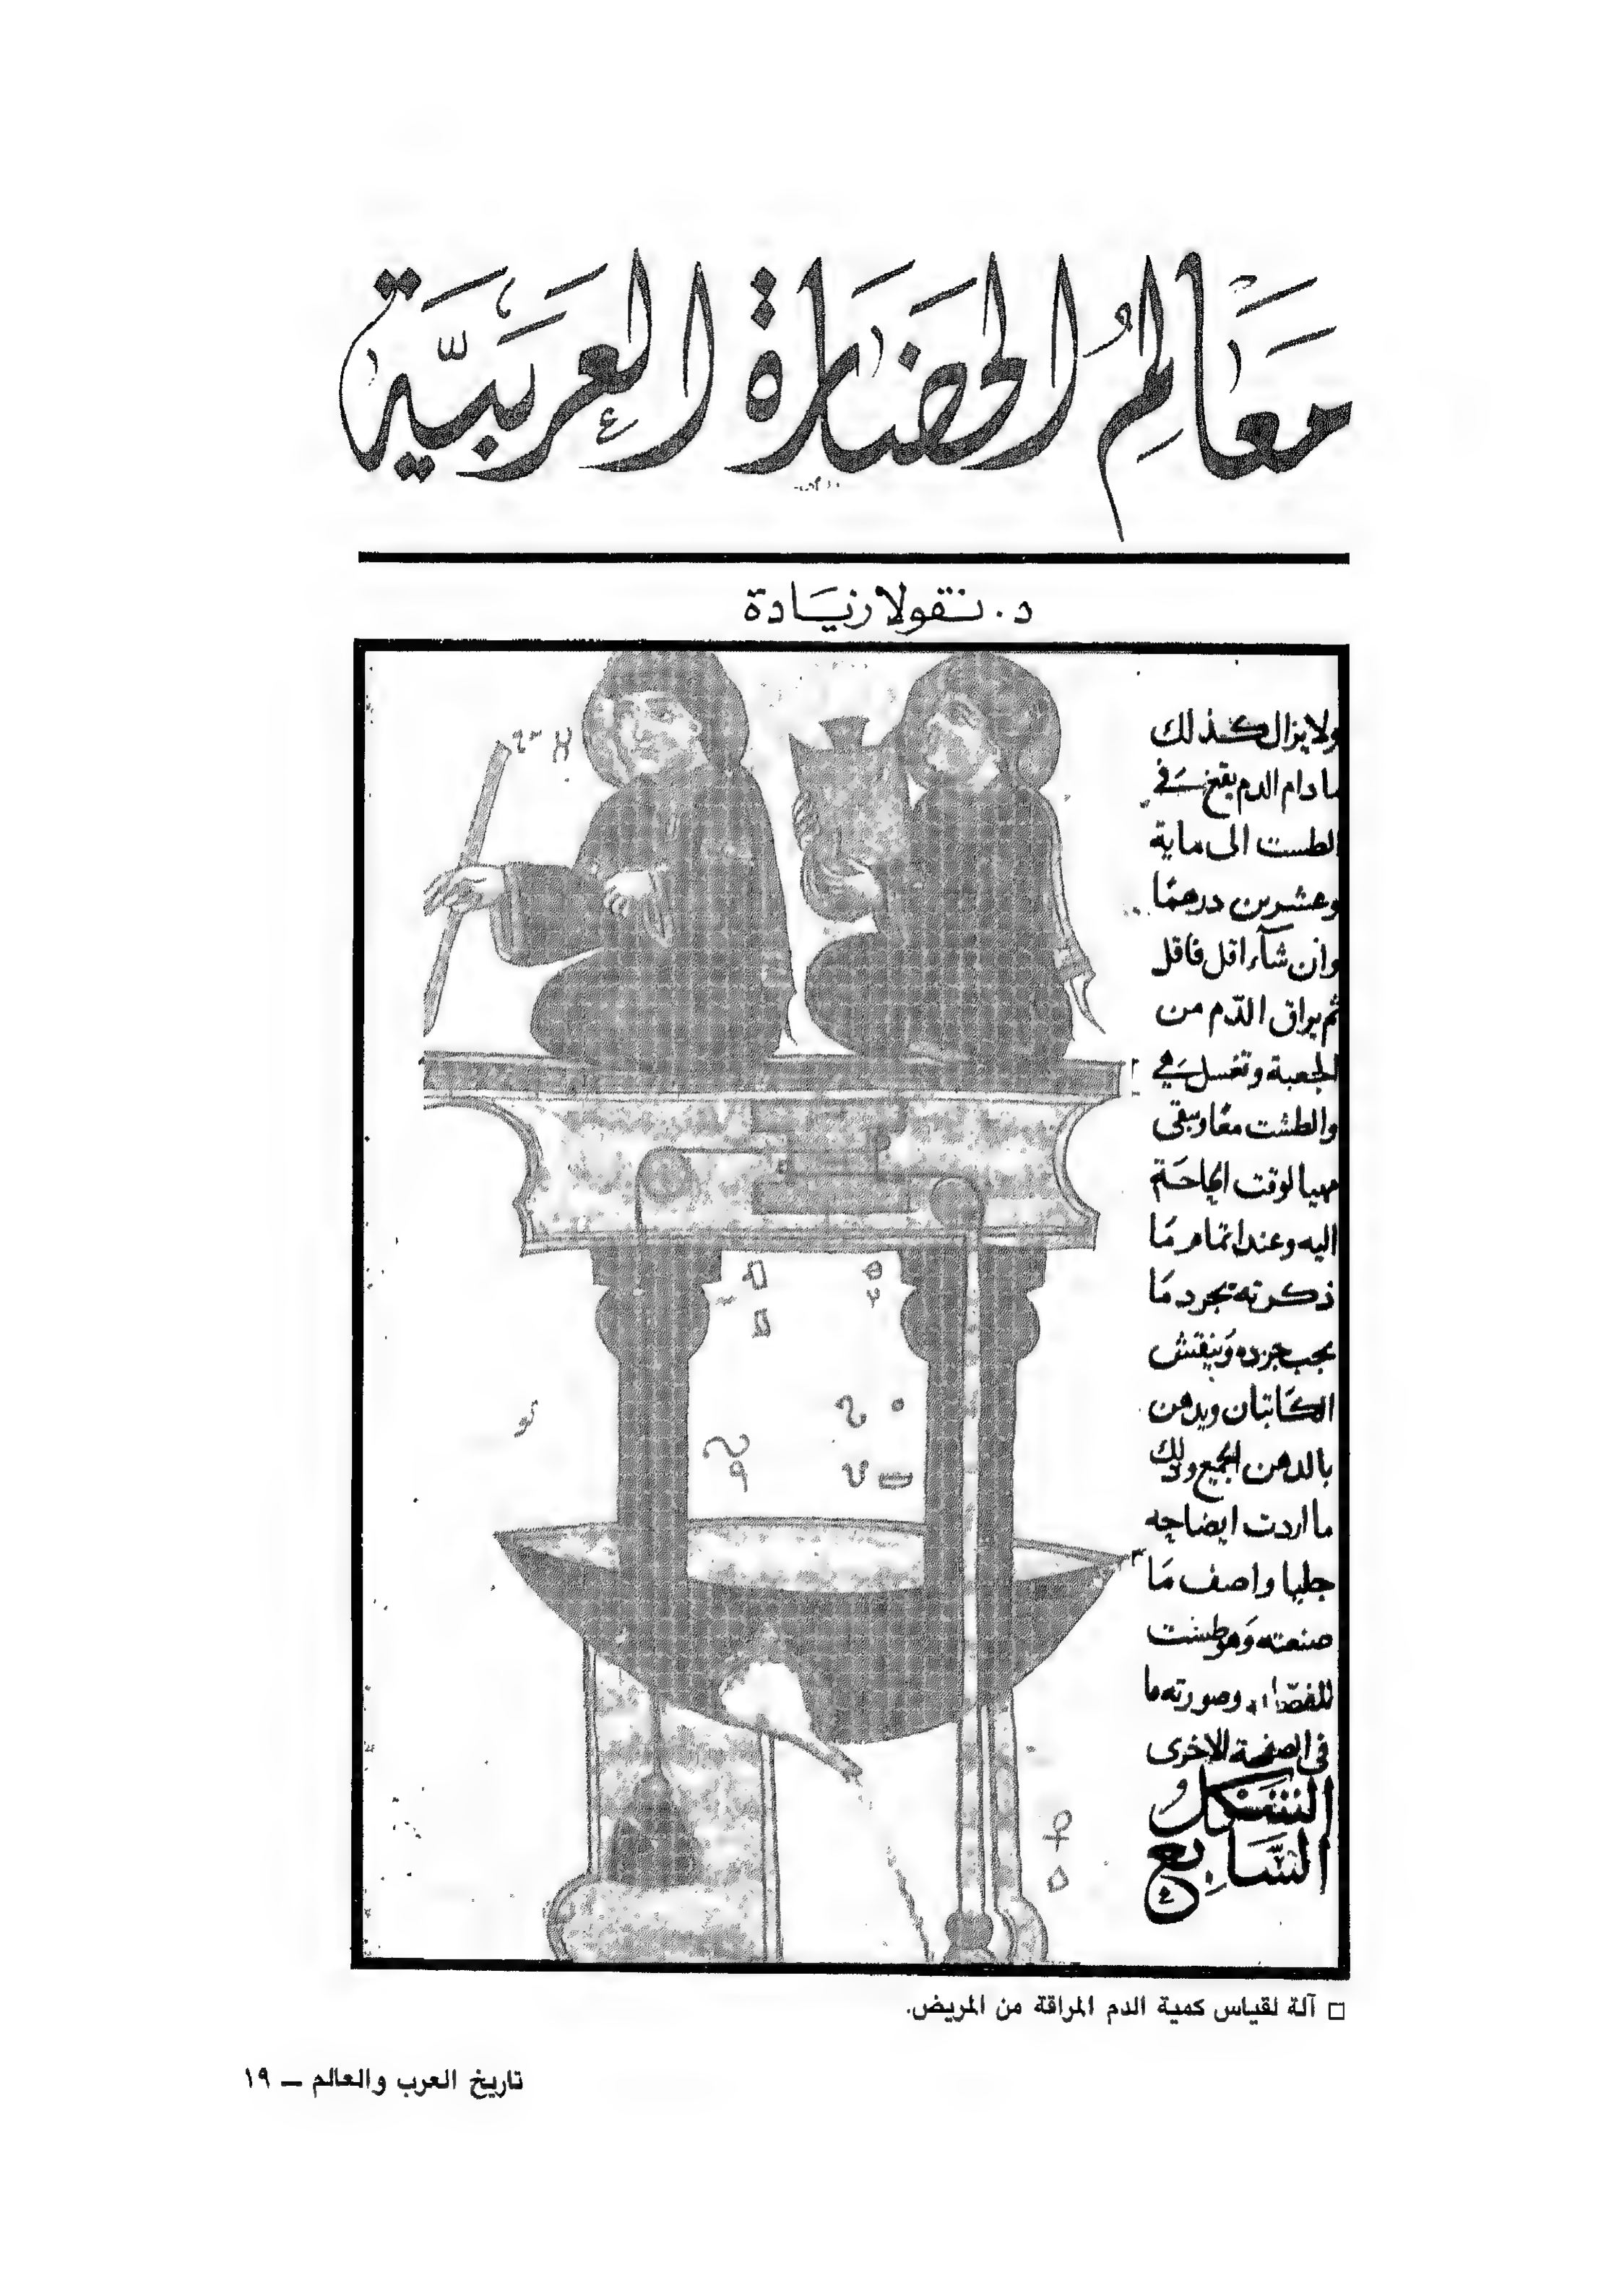 مَعَالِمُ الحَضَارَة العَرَبيَّة
د. نقولا زيَادة
ولا يزال كذلك
ما دام الدم يقع في
الطست الى ماية
وعشرين درهمًا
وان شآء اقل فاقل
ثم يراق الدّم من
الجعبة وتغسل هي
والطست معًا ويبقى
مهيا لوقت الحاجَة
اليه وعند اتمام مَا
ذكرته يجرد مَا
يجب جرده وَينقش
الكَاتبان ويدهن
بالدهن الجميع وذلك
ما اردت ايضاحه
جليا واصف مَا
صنعته وَهو طست
وصورته ما
في الصفحة الاخرى
الشكل
السَّابِع
□ آلة لقياس كمية الدم المراقة من المريض.
تاريخ العرب والعالم — ١٩